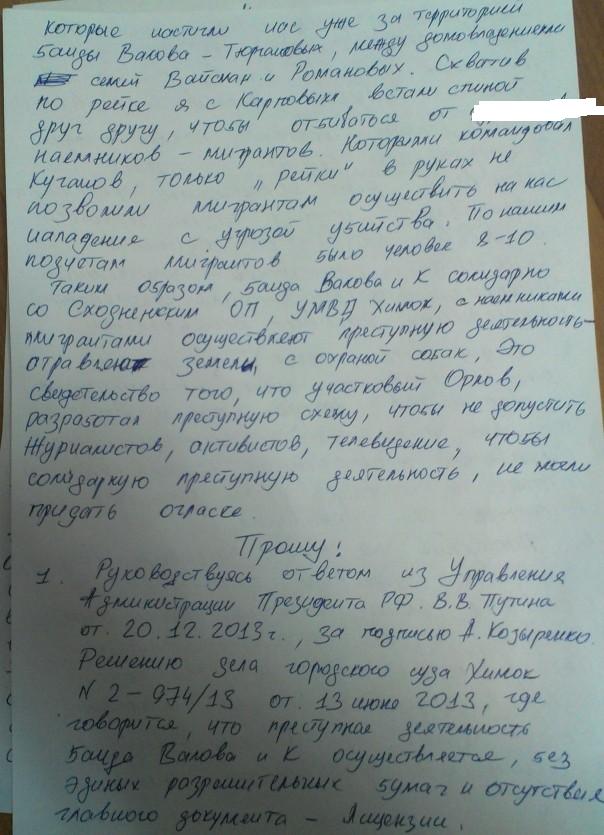 которые настигли нас уже за территорией
банды Валова – Тюргашовых, между домовладениями
семей Вайсман и Романовых. Схватив
по рейке я с Карповых встали спиной
друг другу, чтобы отбиваться от
наемников – мигрантов. Которыми командовал
Кугашов, только „рейки" в руках не
позволили мигрантам осуществить на нас
нападение с угрозой убийства. По нашим
подчетам мигрантов было человек 8-10.
Таким образом, банда Валова и К солидарно
со Сходненским ОП, УМВД Химок, с наемниками
мигрантами осуществляют преступную деятельность–
отравление земель, с охраной собак, Это
свидетельство того, что участковый Орлов,
разработал преступную схему, чтобы не допустить
журналистов, активистов, телевидение, чтобы
солидарную преступную деятельность, не могли
придать огласке.
Прошу!
1. Руководствуясь ответом из Управления
Администрации Президента РФ. В.В. Путина
от. 20.12.2013г., за подписью А. Козыренко.
Решению дела городского суда Химок
N 2-974/13 от. 13 июне 2013, где
говорится, что преступная деятельность
банда Валова и К осуществляется, без
эдиных разрешительных бумаг и отсутствия
главного документа – Лицензии.